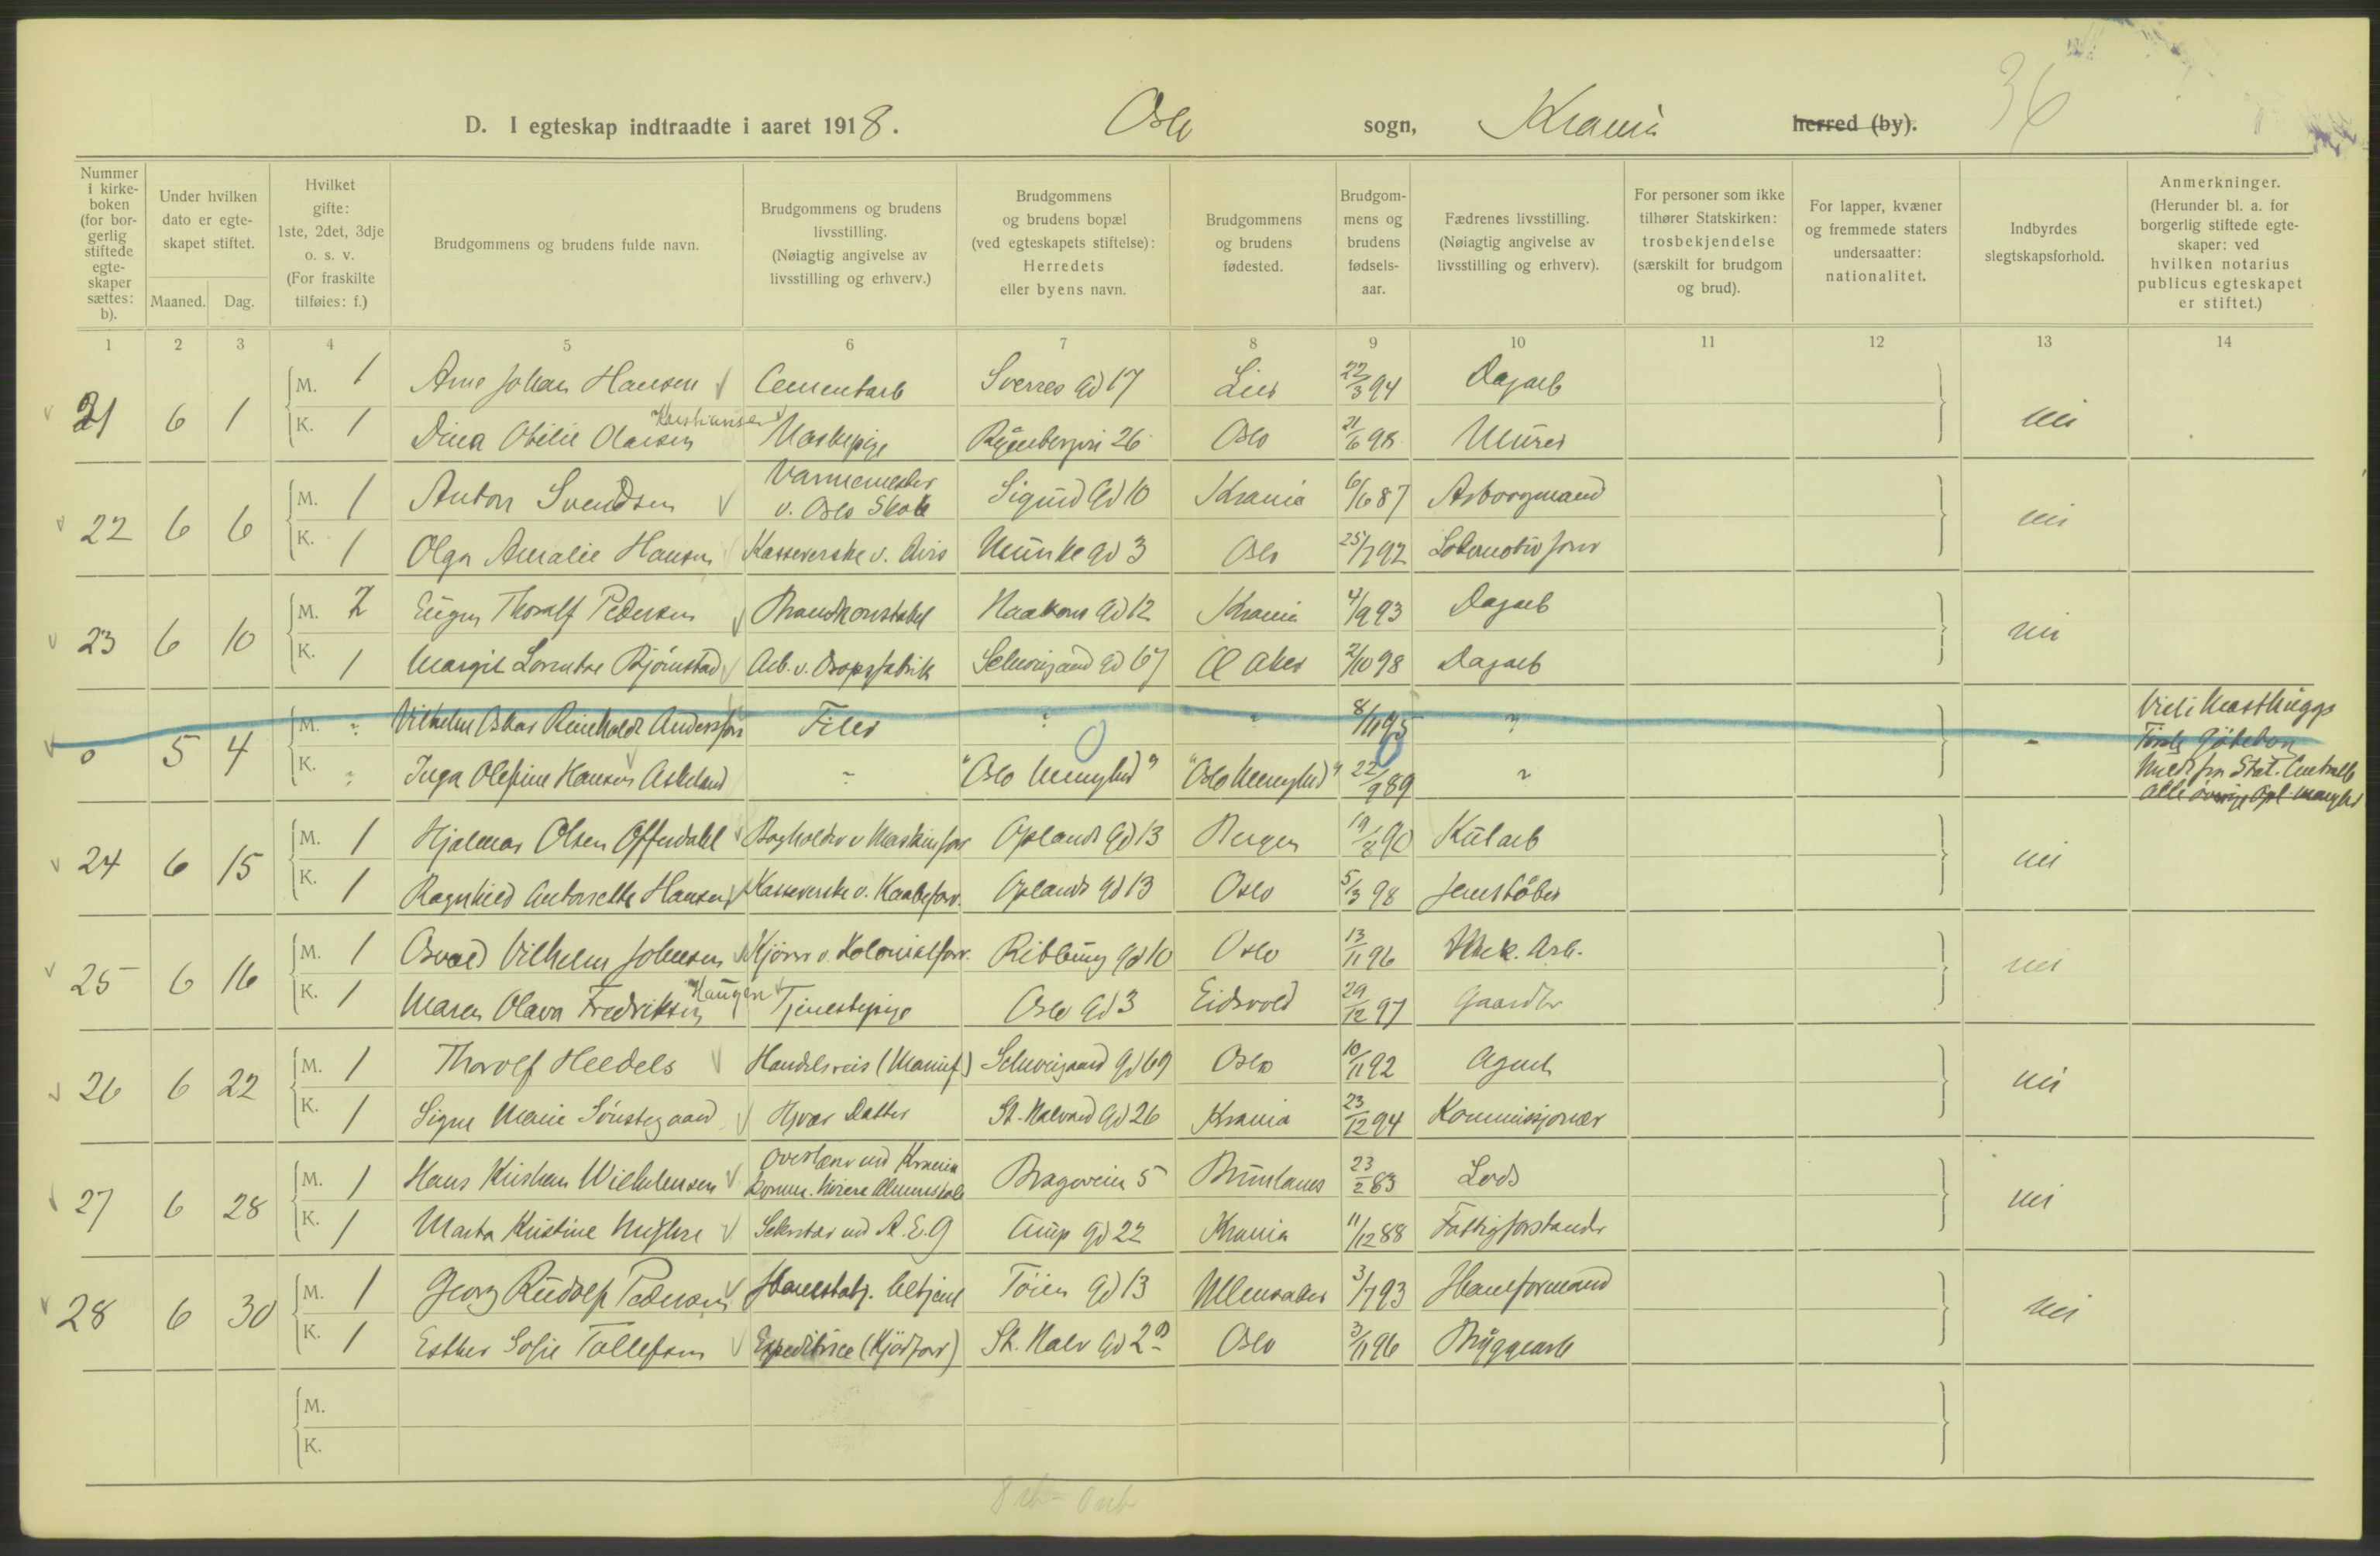 36
D. I egteskap indtraadte i aaret 1918. Oslo sogn, Krania herred (by).
Nummer i kirke-boken (for bor-gerlig stiftede egte-skaper sættes: b).
Under hvilken dato er egte-skapet stiftet.
Maaned. Dag.
Hvilket gifte: 1ste, 2det, 3dje o. s. v. (For fraskilte tilføies: f.)
Brudgommens og brudens fulde navn.
Brudgommens og brudens livsstilling. (Nøiagtig angivelse av livsstilling og erhverv.)
Brudgommens og brudens bopæl (ved egteskapets stiftelse): Herredets eller byens navn.
Brudgommens og brudens fødested.
Brudgom-mens og brudens fødsels-aar.
Fædrenes livsstilling. (Nøiagtig angivelse av livsstilling og erhverv).
For personer som ikke tilhører Statskirken: trosbekjendelse (særskilt for brudgom og brud).
For lapper, kvæner og fremmede staters undersaatter: nationalitet.
Indbyrdes slegtskapsforhold.
Anmerkninger. (Herunder bl. a. for borgerlig stiftede egte-skaper: ved hvilken notarius publicus egteskapet er stiftet.)
1 2 3 4 5 6 7 8 9 10 11 12 13 14
21 6 1 M. 1 Arne Johan Hansen Cementarb Sverres Gd 17 Lier 22/3 94 Dagarb nei
Kristiansen
K. 1 Dina Otilie Olaisen Oslo 21/6 98 Murer
22 6 6 M. 1 Anton Svendsen Varmemester v. Oslo Skole Sigurd Gd 10 Krania 6/6 87 Arborgmand nei
K. 1 Olga Amalie Hansen Kasseverske v. Avis Munke Gd 3 Oslo 25/7 92 Lokomotiv
23 6 10 M. 2 Eugen Thoralf Pedersen Brandkonstabel Haakons Gd 12 Krania 4/9 93 Dagarb nei
K. 1 Margit Lorentze Bjørnstad Arb. v. Dropsfabrik Schweigaard Gd 67 Ø Aker 2/10 98 Dagarb
0 5 4 M. Vilhelm Oskar Reinholdt Andersson Filer 8/11 95
K. Inga Olefine Hansen Askeland "Oslo Menighed" "Oslo Menighed" 22/9 89
24 6 15 M. 1 Hjalmar Olsen Offerdahl Bogholder v Maskinforr Oplands Gd 13 Bergen 19/8 90 Kularb nei
K. 1 Ragnhild Antonette Hansen Kasseverske v. Kaabeforr. Oplands Gd 13 Oslo 5/3 98 Jernstøber
25 6 16 M. 1 Osvald Vilhelm Johnsen Kjører v. Kolonialforr. Ribbung Gd 10 Oslo 13/11 96 Mek. Arb. nei
Haugen
K. 1 Maren Olava Fredriksen Tjenestepige Oslo Gd 3 Eidsvold 29/12 97 Gaardbr
26 6 22 M. 1 Thorolf Heedels Handelsreis (Manuf) Schweigaard Gd 69 Oslo 10/11 92 Agent nei
K. 1 Signe Marie Sønstegaard Hjv. Datter St. Halvard Gd 26 Krania 23/12 94 Kommissjonær
27 6 28 M. 1 Hans Kristian Wilhelmsen Overlærer ved Krania komm. høiere Almenskole Brageveien 5 Brunlanes 23/2 83 Lods nei
K. 1 Marta Kristine Sekretær ved A.E.G Gd 22 Krania 11/12 88 Fattigforstander
28 6 30 M. 1 Georg Rudolf Pedersen Betjent Tøien Gd 13 Ullensaker 3/7 93 nei
K. 1 Esther Sofie Tollefsen Expeditrice (Kjødforr) St. Halv Gd 2 Oslo 3/11 96 Bryggearb
M.
K.